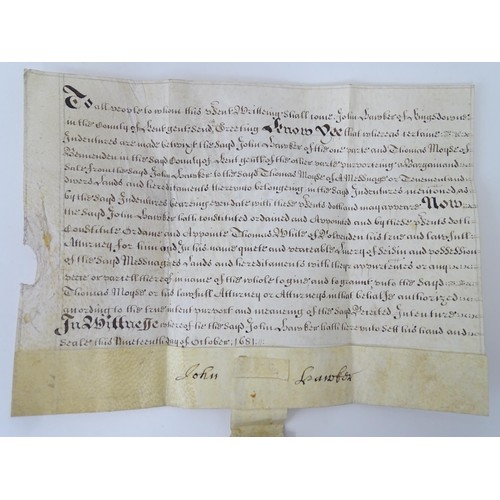 To all people to whom this p̃sent Writteing shall come John Hawker of Kingsdowne
in the County of Kent gent sendeth Greeting Know Yee that whereas certaine
Indentures are made betweene the said John Hawker of the one parte and Thomas Moyse of
Benenden in the said County of Kent of the other parte purporteing a Bargaine and
sale from the said John Hawker to the said Thomas Moyse of a Messuage or Tenement and
diverse Lands and hereditaments thereunto belongeing in the said Indentures mencioned as
by the said Indentures beareing even date with these p̃sents doth and may appeare Now
the said John Hawker hath constituted ordained and Appointed and by these p̃sents doth
Constitute Ordaine and Appointe Thomas White of his true and lawfull
Attorney for him and in his name quiete and peaceable Livery of Seisin and possession
of the said Messuage Lands and hereditaments with their appurtences or any
peece or parcell thereof in name of the whole to give and to graunt unto the said
Thomas Moyse or his lawfull Attorney or Attorneys in that behalfe authorized
according to the true intent purport and meaneing of the said Recited Indenture
In Wittnesse whereof he the said John Hawker hath hereunto sett his hand and
seale this Nineteenth day of October 1681
John Hawker